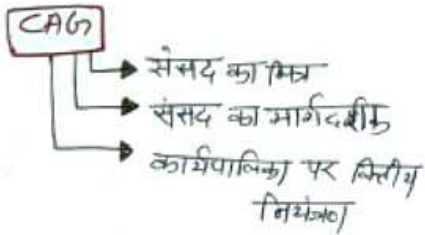 CAG
संसद का मित्र
संसद का मार्गदर्शक
कार्यपालिका पर वित्तीय
नियंत्रण